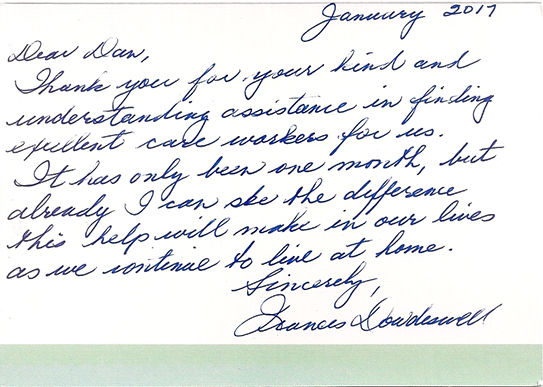 January 2017
Dear Dan,
Thank you for your kind and
understanding assistance in finding
exellent care workers for us.
It has only been one month, but
already I can see the difference
this help will make in our lives
as we continue to live at home.
Sincerely,
Frances Dowdeswell